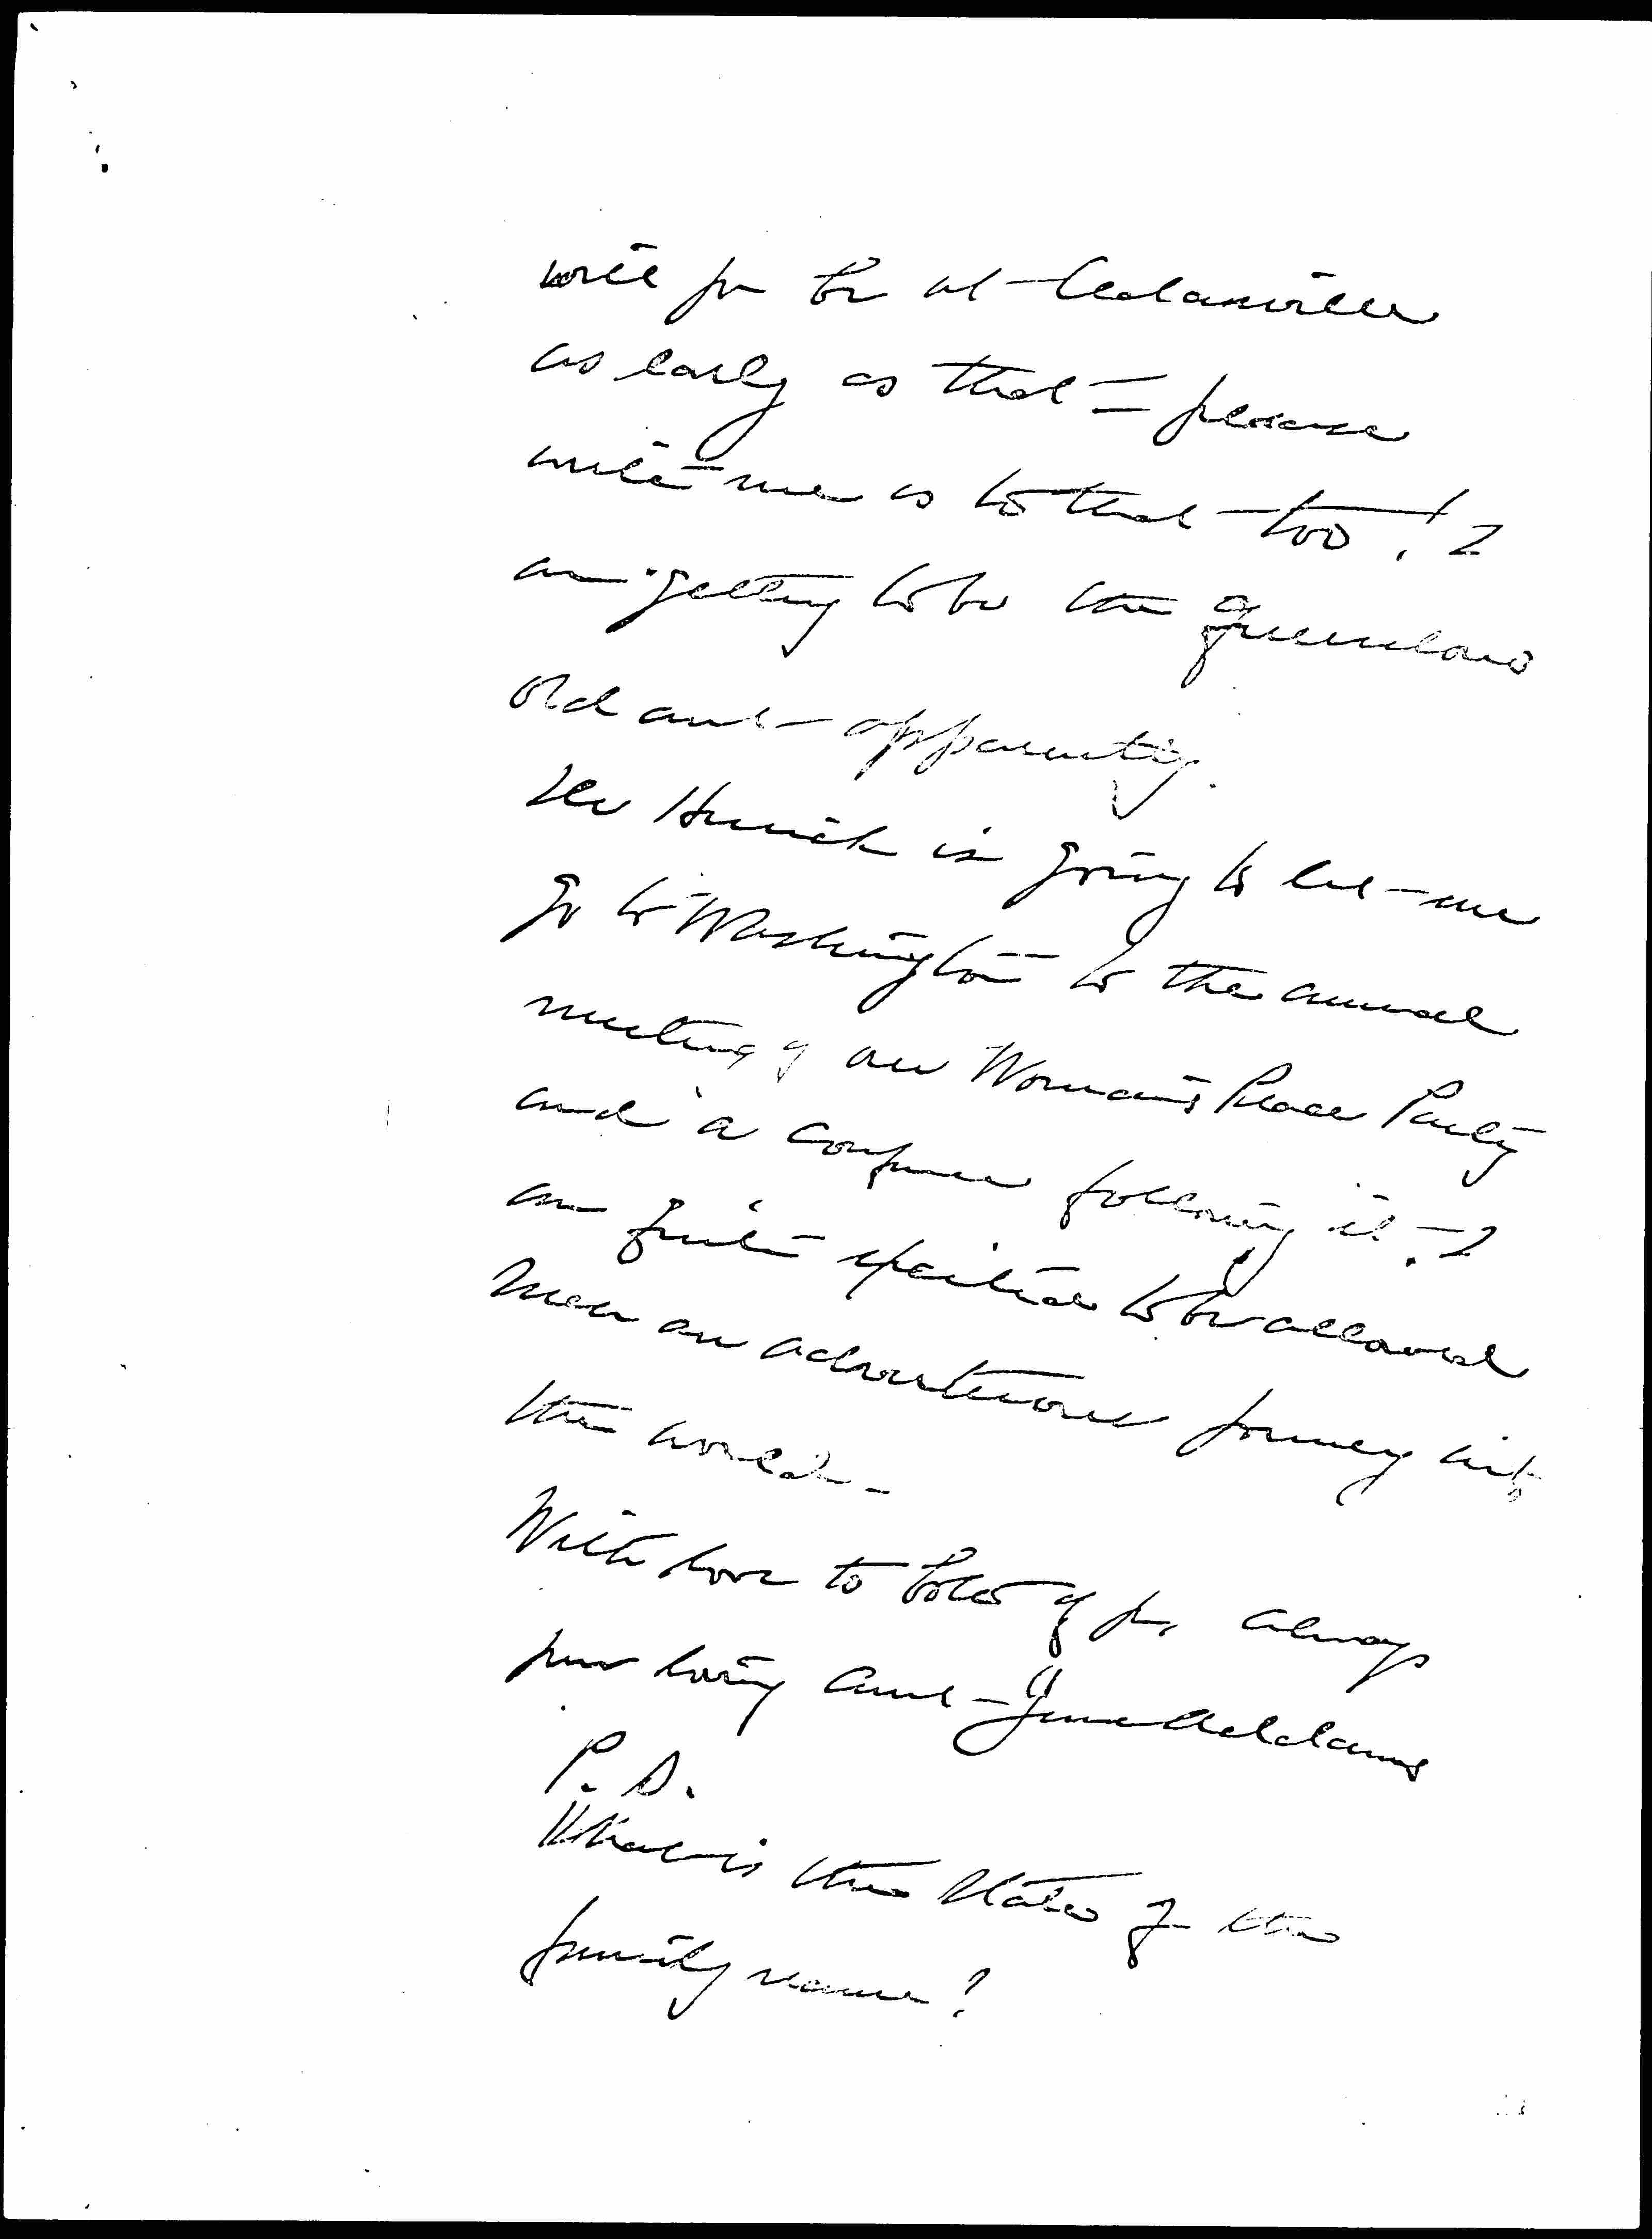 will you be at Cedarville
as early as that = please
write me as to that too! I
am getting to be the querulous
old aunt apparently.
Dr Herrick is going to let me
go to Washington to the annual
meeting of our Woman's Peace Party
and a conference following it. I
am quite excited to be allowed
such an adventurous journey into
the world -
With love to both of you, always
your loving aunt Jane Addams
P. S.
What is the state of the
family name?